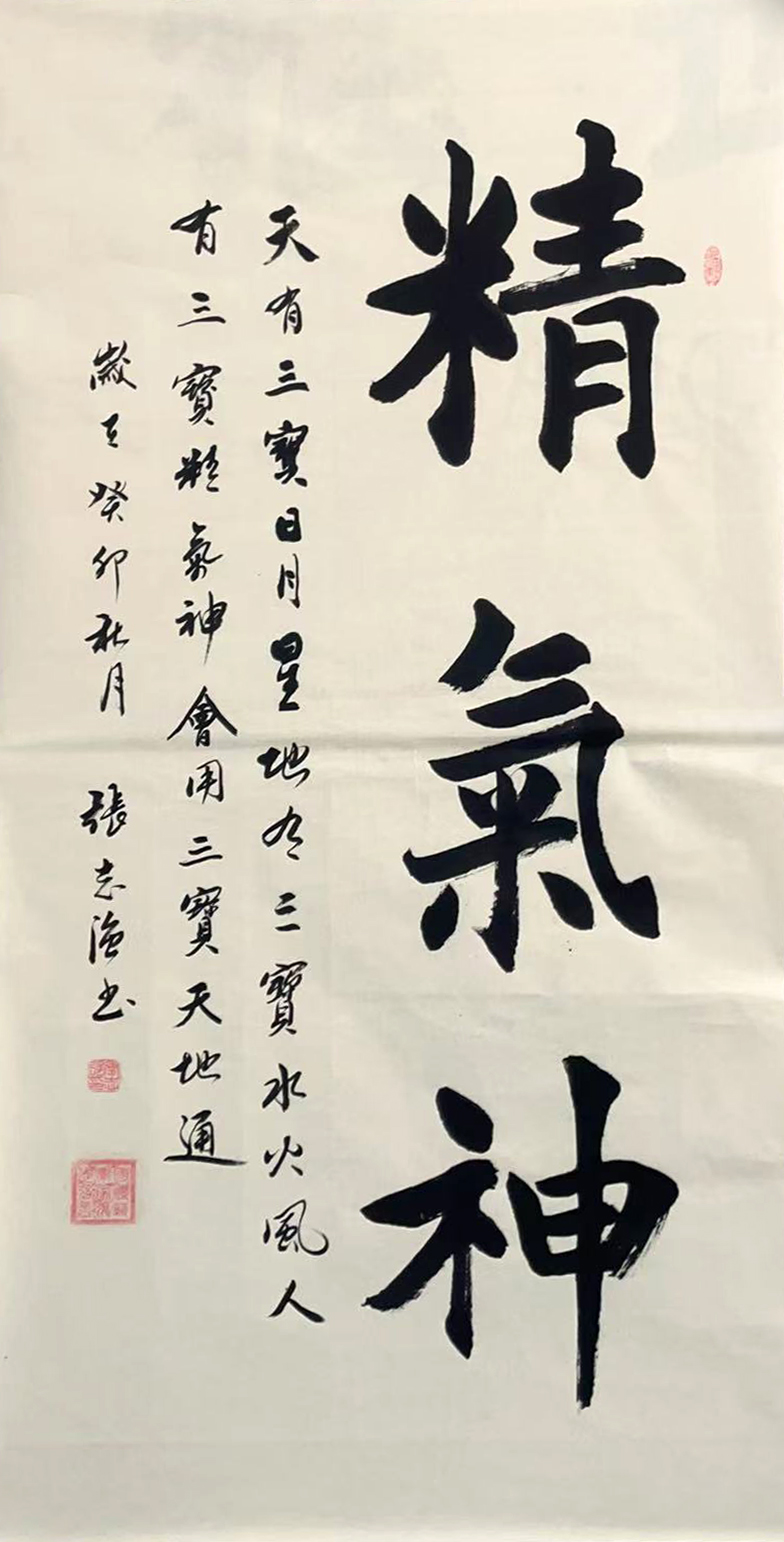 精氣神
天有三寶日月星地有三寶水火風人
有三寶精氣神會用三寶天地通
歲在癸卯秋月 張志强书